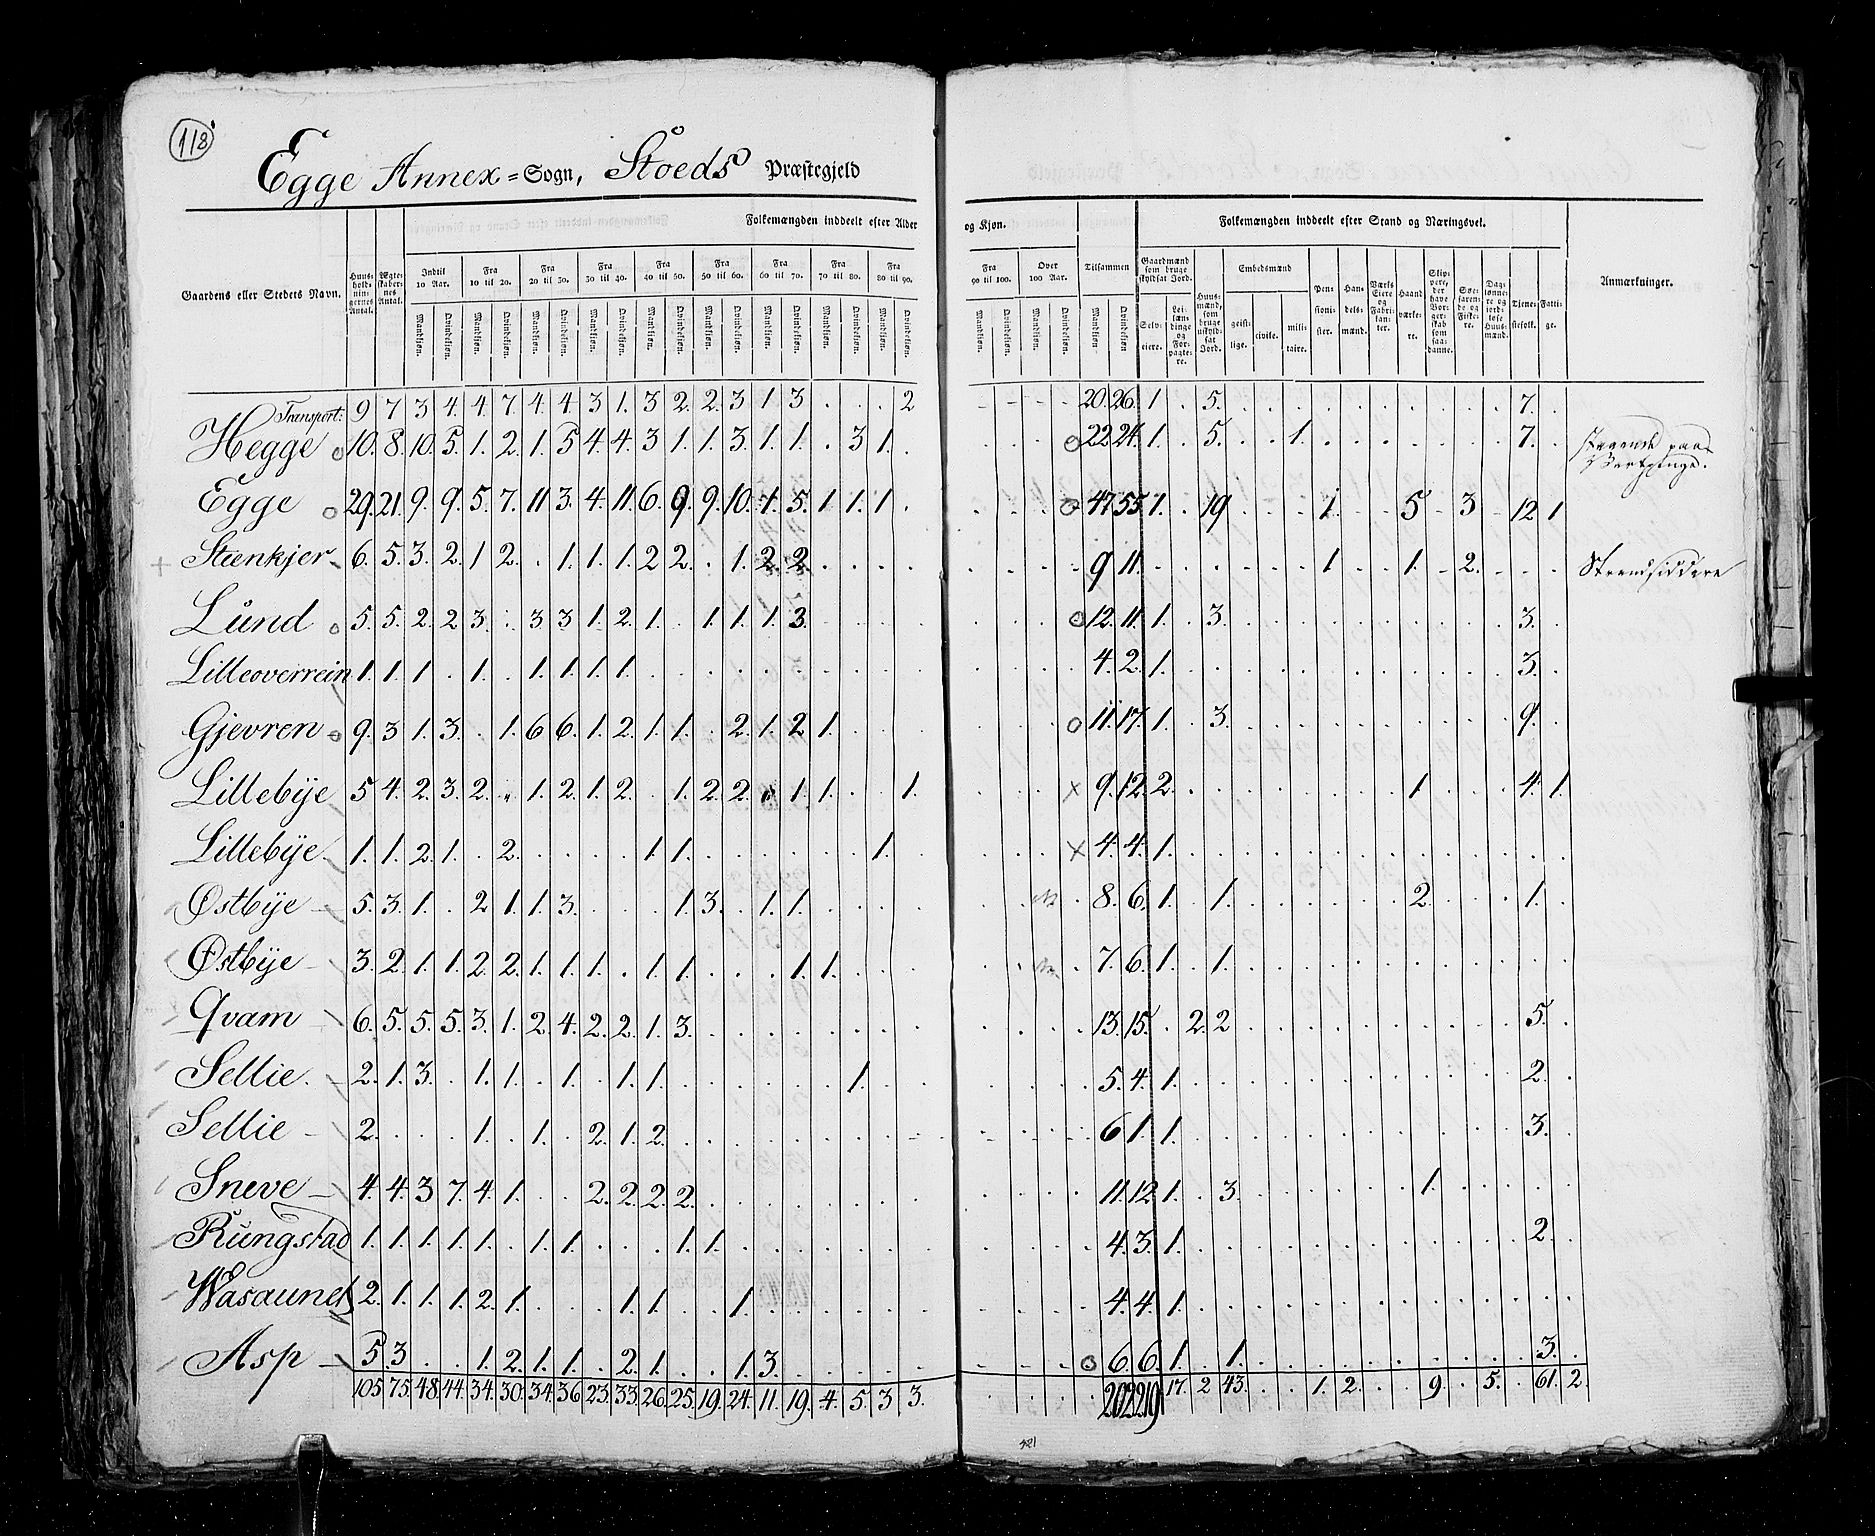 118
Egge Annex = Sogn, Stoeds Præstegjeld
Folkemængden inddeelt efter Alder og Kjøn. Tilsammen Folkemængden inddeelt efter Stand og Næringsvei.
Gaardens eller Stedets Navn. Huus-holdnin-gernes Antal. Ægte-skaber-nes Antal. Indtil 10 Aar. Fra 10 til 20. Fra 20 til 30. Fra 30 til 40. Fra 40 til 50. Fra 50 til 60. Fra 60 til 70. Fra 70 til 80. Fra 80 til 90. Fra 90 til 100. Over 100 Aar. Gaardmænd som bruge skyldsat Jord. Huus-mænd, som bruge uskyld-sat Jord. Embedsmænd Pen-sioni-ster. Han-dels-mænd. Værks Eiere og Fabri-kan-ter. Haand-værke-re. Skip-pere, der have Bor-ger-skab som saa-danne. Søe-farende og Fiske-re. Dag-lønne-re og jord-løse Huus-mænd. Tjene-stefolk. Fatti-ge. Anmærkninger.
Mandkjøn. Qvindekjøn. Selv-eiere. Lei-læn-dinge og For-pagte-re. geist-lige. civile. mili-taire.
Transport: 9 7 3 4. 4. 7. 4. 4. 3 1. 3 2. 2. 3 1 3 . . . 2 20. 26. 1 . 5. 7.
Hegge 10. 8. 10. 5. 1. 2. 1. 5 4. 4. 3 1. 1. 3. 1. 1. . 3 1. . 22 24. 1. . 5. . . 1. 7.
Egge 29. 21. 9. 9. 5. 7. 11 3. 4. 11. 6. 9. 9. 10. 4. 5. 1 1. 1. . 47 55 1. . 19 1. 5 3 12 1
Steenkjer 6. 5. 3. 2. 1 2. . 1. 1. 1. 2 2. . 1. 2. 2. 9 11. 1 1. 2. Strandsiddere
Lund 5. 5. 2. 2 3. . 3. 3 1. 2. 1. . 1. 1. 1. 3. 12. 11. 1. . 3. 3.
Lilleoverrein 1. 1. 1 . 1. . 1. 1. 1. 1. 4. 2. 1. 3.
Gjevren 9. 3 1. 3. . 1. 6 6. 1. 2. 1. 1. . 2. 1. 2 1. 11. 17. 1. . 3. 9.
Lillebÿe 5 4. 2. 3. 2. . 1. 2. 1. 2. . 1. 2. 2. . 1. 1. . . 1. 9. 12. 2. 1 4. 1.
Lillebÿe. 1. 1. 2. 1. . 2. 1. 1. 1. 4. 4. 1.
Østbÿe 5. 3. 1. . 2 1. 1. 3. 1. 3. . 1. 1. 8. 6. 1. . 1. 2. 1.
Østbÿe 3. 2. 1. 1. 2. 2. 1. 1. 1. . 1. 1. 1. 1. 7. 6. 1. . 1.
Qvam 6. 5. 5. 5. 3. 1. 2. 4. 2. 2. 1. 3. 13. 15. . 2. 2 5.
Sellie. 2. 1. 3. . 1. 1. . 1. . 1. 1. 1. 5. 4. 1. 2.
Sellie 2. 1. . 1. . 2. 1. 2. 6 1. 1. 3.
Sneve 4. 4. 3 7. 4. 1. 2. 2. 2. 2. 11. 12. 1. . 3. 1.
Rungstad 1. 1. 1. 1. 1. . 1. 1. 1. 1. 4. 3. 1. 2.
Wasaunet 2. 1. 1. 1. 2. 1. 1. 1. 1. 4. 4. 1.
Asp 5 3 1. 2. 1. 1. . 2. 1. 1. 3. 6. 6. 1. . 1. 3.
105 75. 48. 44. 34. 30. 34. 36. 23. 33. 26. 25. 19. 24. 11. 19. 4. 5. 3 3. 202 219 17. 2 43. 1. 2. 9. 5. 61. 2.
421